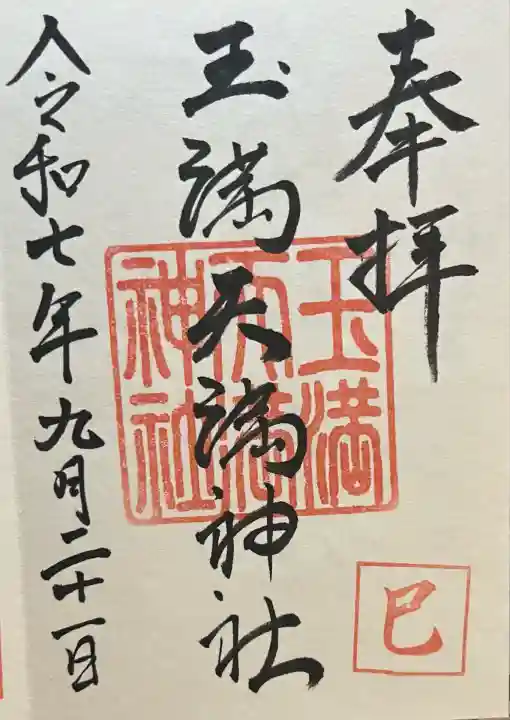 奉拝
巳
玉満天満神社
玉満
天満
神社
令和七年九月二十一日